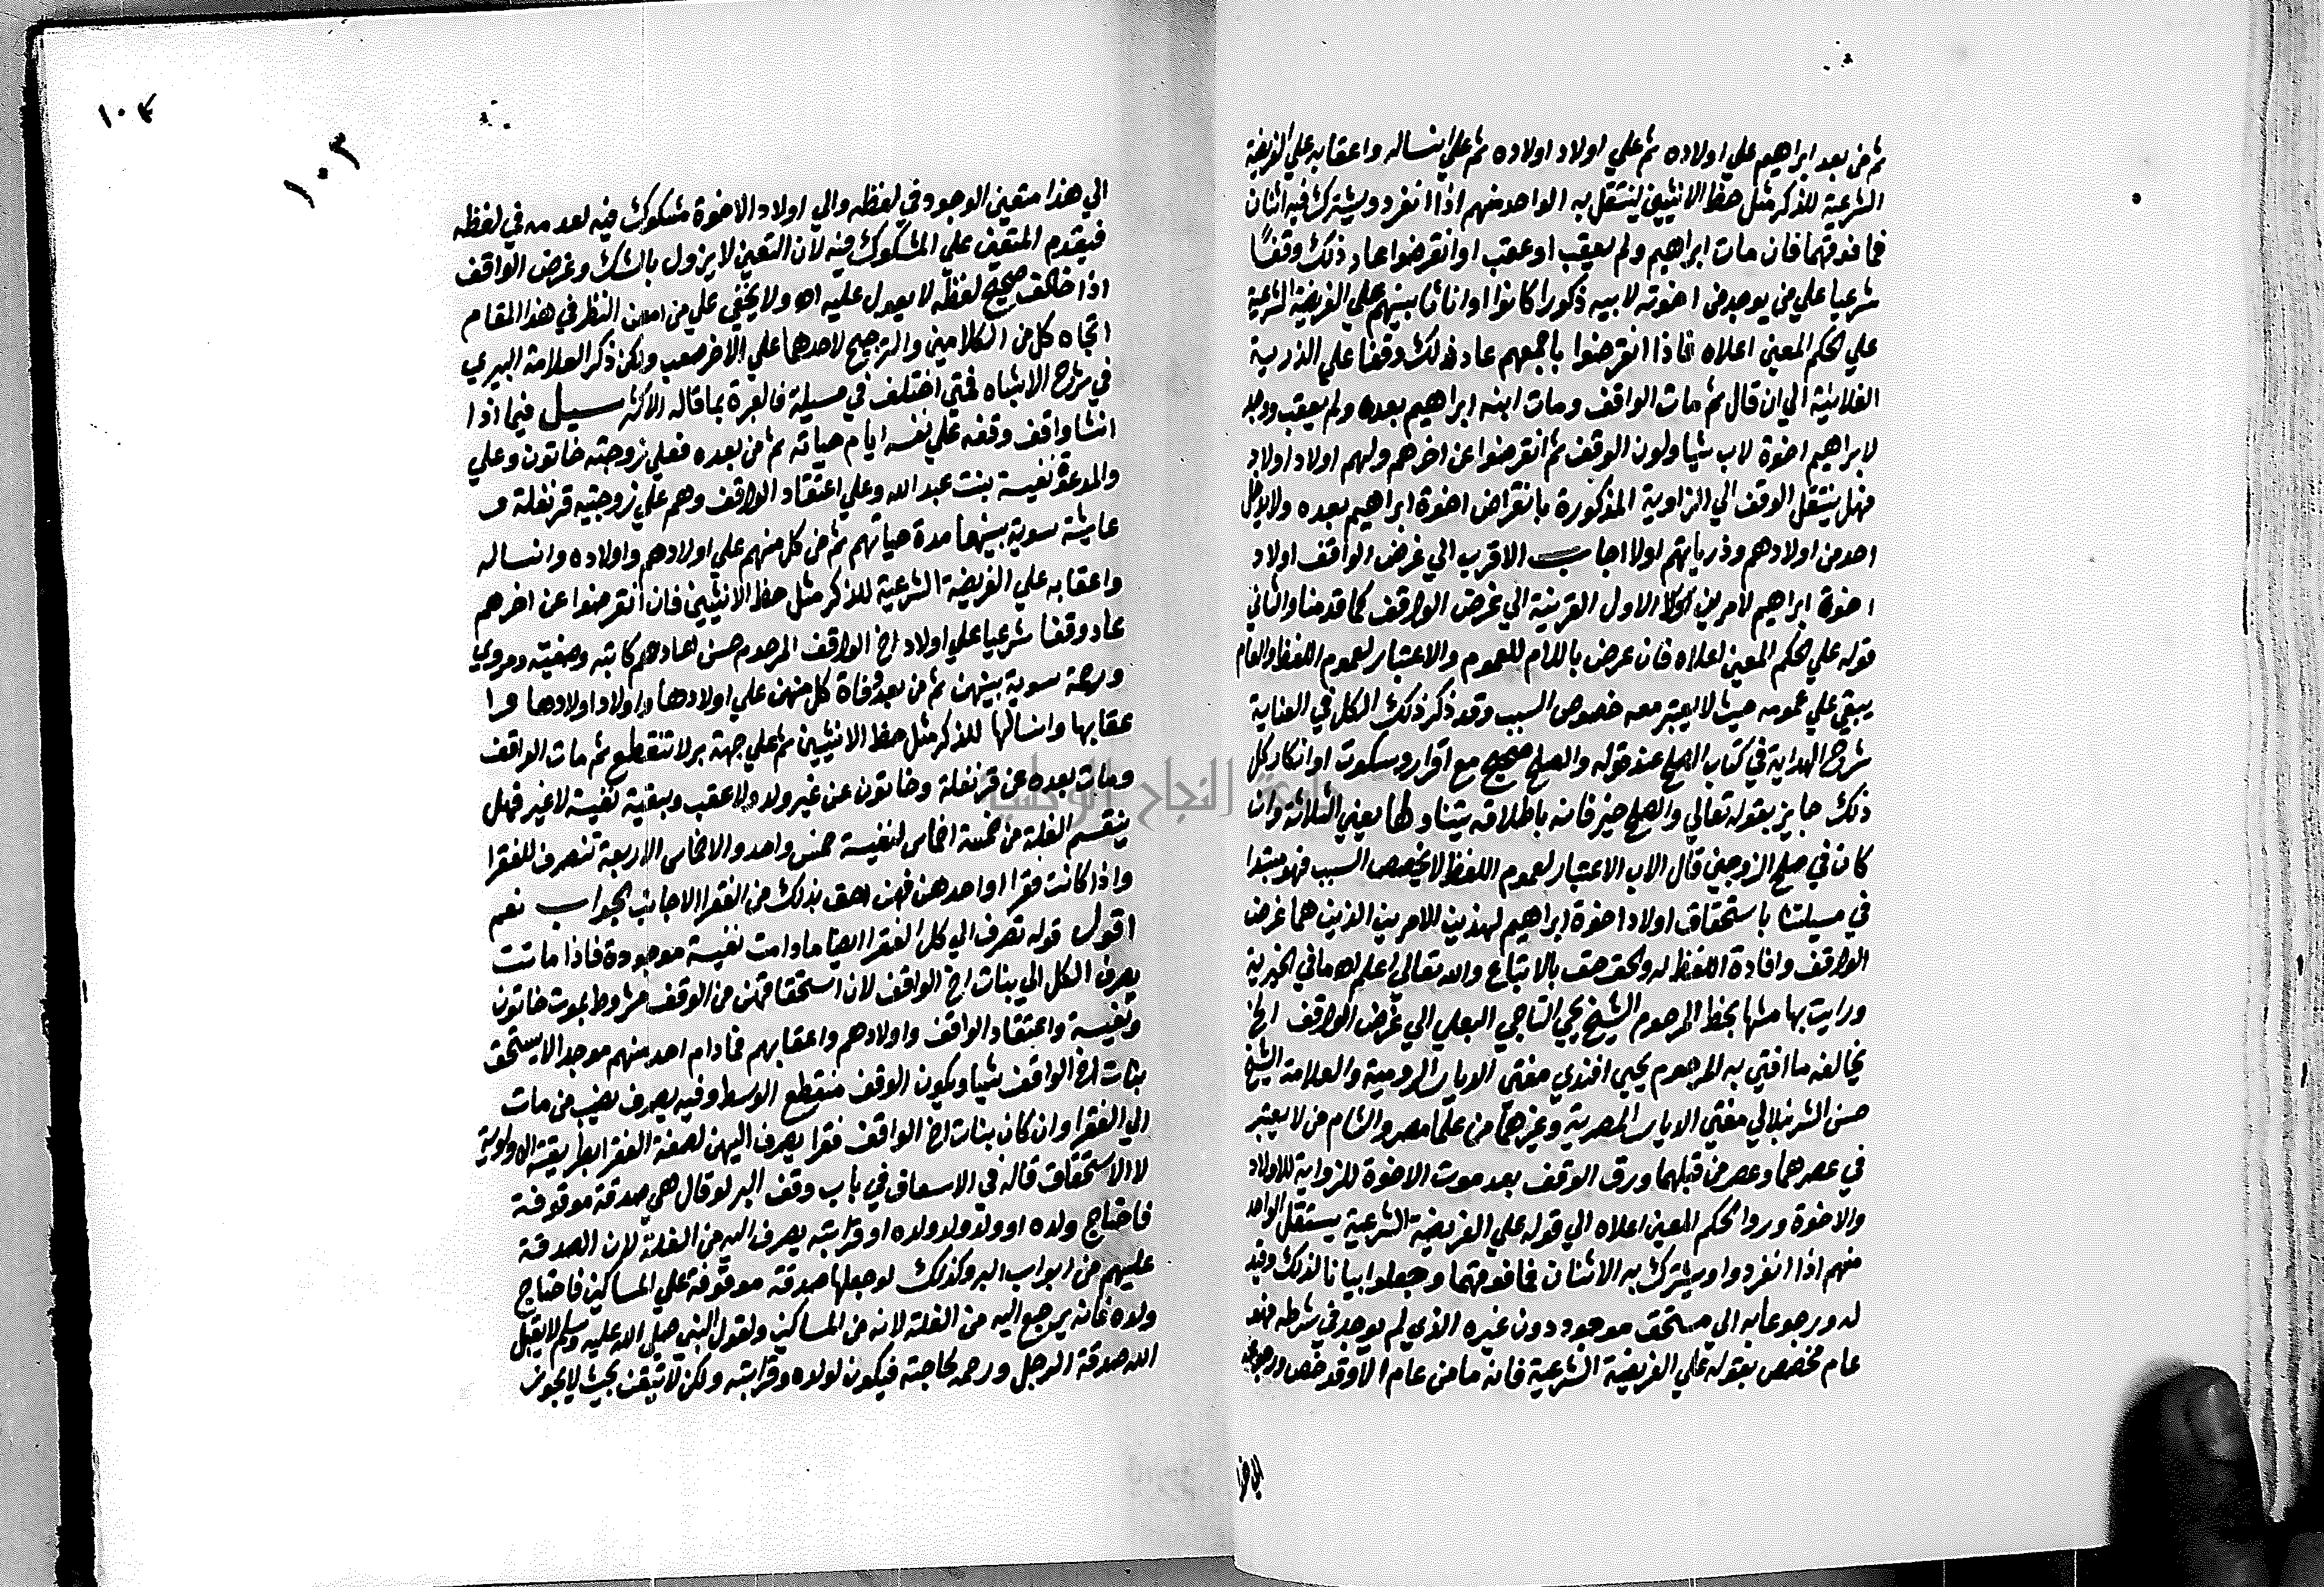 ثم من بعد ابراهيم علي اولاده ثم علي اولاد اولاده ثم علي انساله واعقابه علي الفريضة
الشرعية للذكر مثل حظ الانثيين يستقل به الواحد منهم اذا انفرد ويشترك فيه اثنان
فما فوقهما فان مات ابراهيم ولم يعقب او عقب او انقرضوا عاد ذلك وقفًا
شرعيا علي من يوجد من اخوته لابيه ذكورا كانوا او اناثا بينهم علي الفريضة الشرعية
علي الحكم المعين اعلاه فاذا انقرضوا باجمعهم عاد ذلك وقفا علي الذرية
الفلانية الي ان قال ثم مات الواقف ومات ابنه ابراهيم بعده ولم يعقب ووجد
لابراهيم اخوة لاب شيا ولون الوقف ثم انقرضوا عن اخرهم ولهم اولاد اولاد
فهل ينتقل الوقف الي الزاوية المذكورة بانقراض اخوة ابراهيم بعده ولا يدخل
احد من اولادهم وذرياتهم اولا اجاب الاقرب الي غرض الواقف اولاد
اخوة ابراهيم لامرين الاول القرينة الي غرض الواقف كما قدمنا والثاني
قوله علي الحكم المعين اعلاه فان عرض باللام للعموم والاعتبار لعموم اللفظ والعام
يبقي علي عمومه حيث لا يعتبر معه خصوص السبب وقد ذكر ذلك الكل في العناية
شرح الهداية في كتاب الصلح عند قوله والصلح صحيح مع اقرار وسكوت او انكار كل
ذلك جايز بقوله تعالي والصلح خير فانه باطلاقه يتناولها يعني الثلاثة وان
كان في صلح الزوجين قال الاب الاعتبار لعموم اللفظ لا يخصص السبب فهو مبتدا
في مسيلتنا باستحقاق اولاد اخوة ابراهيم لهذين الامرين الذين هما غرض
الواقف وافادة اللفظ له والحق حقق بالاتباع والله تعالي اعلم اه ما في الخيرية
ورايت بهامشها بخط المرحوم الشيخ يحي التاجي البعلي الي غرض الواقف الخ
يخالفه ما افتي به المرحوم يحيي افندي مفتي الديار الرومية والعلامة الشيخ
حسن الشرنبلالي مفتي الديار المصرية وغيرهما من علما مصر والشام من لا يعتبر
في عصرهما وعصر من قبلهما ورق الوقف بعد موت الاخوة للزواية للاولاد
والاخوة وروا الحكم المعين اعلاه الي قوله علي الفريضة الشرعية يستقل الواحد
منهم اذا انفرد ويشترك به الاثنان فما فوقهما وجعلوا بيانا لذلك وقيد
له ورجوعا به الي مستحق موجود دون غيره الذي لم يوجد في شرطه فهو
عام مخصص بقوله علي الفريضة الشرعية فانه ما من عام الا وقد خص ورجوعه
الي هذا متعين الوجود في لفظه والي اولاد الاخوة مشكوك فيه لعدمه في لفظه
فيقدم المتعين علي المشكوك فيه لان التعين لا يزول بالشك وغرض الواقف
اذا خالف صحيح لفظه لا يعول عليه اه ولا يخفي علي من امعن النظر في هذا المقام
اتجاه كل من الكلامين والترجيح لاحدهما علي الاخر صعب ولكن ذكر العلامة البيري
في شرح الاشباه فمتي اختلف في مسيلة فالعبرة بما قاله الاكثر سيل فيما اذا
انشا واقف وقفه علي نفسه ايام حياته ثم من بعده فعلي زوجته خاتون وعلي
والمدعوة نفيسة بنت عبد الله وعلي اعتقاد الواقف وهم علي زوجتيه قرنفلة و
عايشة سوية بينهما مدة حياتهم ثم من كل منهم علي اولادهم واولاده وانساله
واعقابه علي الفريضة الشرعية للذكر مثل حظ الانثيين فان انقرضوا عن اخرهم
عاد وقفا شرعيا علي اولاد اخ الواقف المرحوم حسن وصفيته
ورحمة سوية بينهن ثم من بعد وفاة كل منهن علي اولادها واولاد اولادها وا
عقابها وانسالها للذكر مثل حظ الانثيين ثم علي جهة بر لا تنقطع ثم مات الواقف
ومات بعده عن قرنفلة وخاتون عن غير ولد ولا عقب وبقية نفيسة لا غير فهل
ينقسم الغلة من خمسة اخماس لنفيسة خمس واحد والاخماس الاربعة تنصرف للفقرا
واذا كانت فقرا او احدهن فهن احق بذلك من الفقرا الاجانب الجواب نعم
اقول قوله تصرف الي كل الفقرا ايضا ما دامت نفيسة موجودة فاذا ماتت
يصرف الكل الي بنات اخ الواقف لان استحقاقهن من الوقف مشروط بموت خاتون
ونفيسة واعتقاد الواقف واولادهم واعقابهم فما دام احد منهم موجدا لا يستحق
بنات اخ الواقف شيا ويكون الوقف منقطع الوسط وفيه يصرف نصيب من مات
الي الفقرا وان كان بنات اخ الواقف فقرا يصرف اليهن لصفة الفقر ابطريقة الاولوية
لا الاستحقاق قاله في الاسعاف في باب وقف البر لو قال هي صدقة موقوفة
فاحتاج ولده او ولد ولده او قرابته يصرف اليه من الغلة لان الصدقة
عليهم من ابواب البر وكذلك لو جعلها صدقة موقوفة علي المساكين فاحتاج
ولده فانه يرجع اليه من الغلة لانه من المساكين ولقول النبي صلي الله عليه وسلم لا يقبل
الله صدقة الرجل ورحمه محتاجة فيكون لولده وقرابته ولكن لا يتيقن بحيث لا يجوز
١٠٣